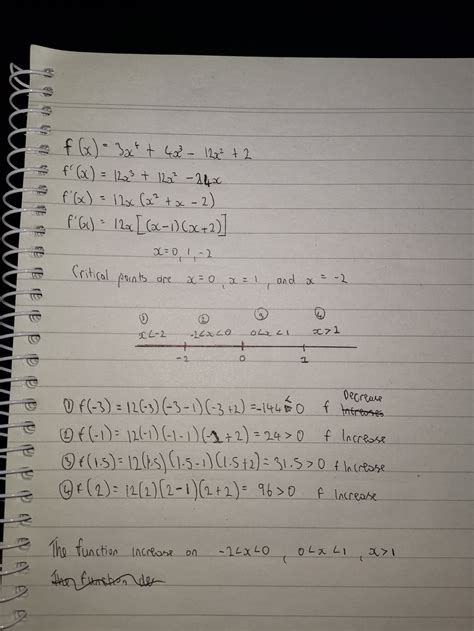 f(x) = 3x⁴ + 4x³ - 12x² + 2
f'(x) = 12x³ + 12x² - 24x
f'(x) = 12x(x² + x - 2)
f'(x) = 12x[(x-1)(x+2)]
x=0, 1, -2
Critical points are x=0, x=1, and x=-2
① ② ③ ④
x<-2 -2<x<0 0<x<1 x>1
-2 0 1
Decrease
① f(-3) = 12(-3)(-3-1)(-3+2) = -144 < 0 f Increases
② f(-1) = 12(-1)(-1-1)(-1+2) = 24 > 0 f Increase
③ f(1.5) = 12(1.5)(1.5-1)(1.5+2) = 31.5 > 0 f Increase
④ f(2) = 12(2)(2-1)(2+2) = 96 > 0 f Increase
The function increase on -2<x<0, 0<x<1, x>1
The function de